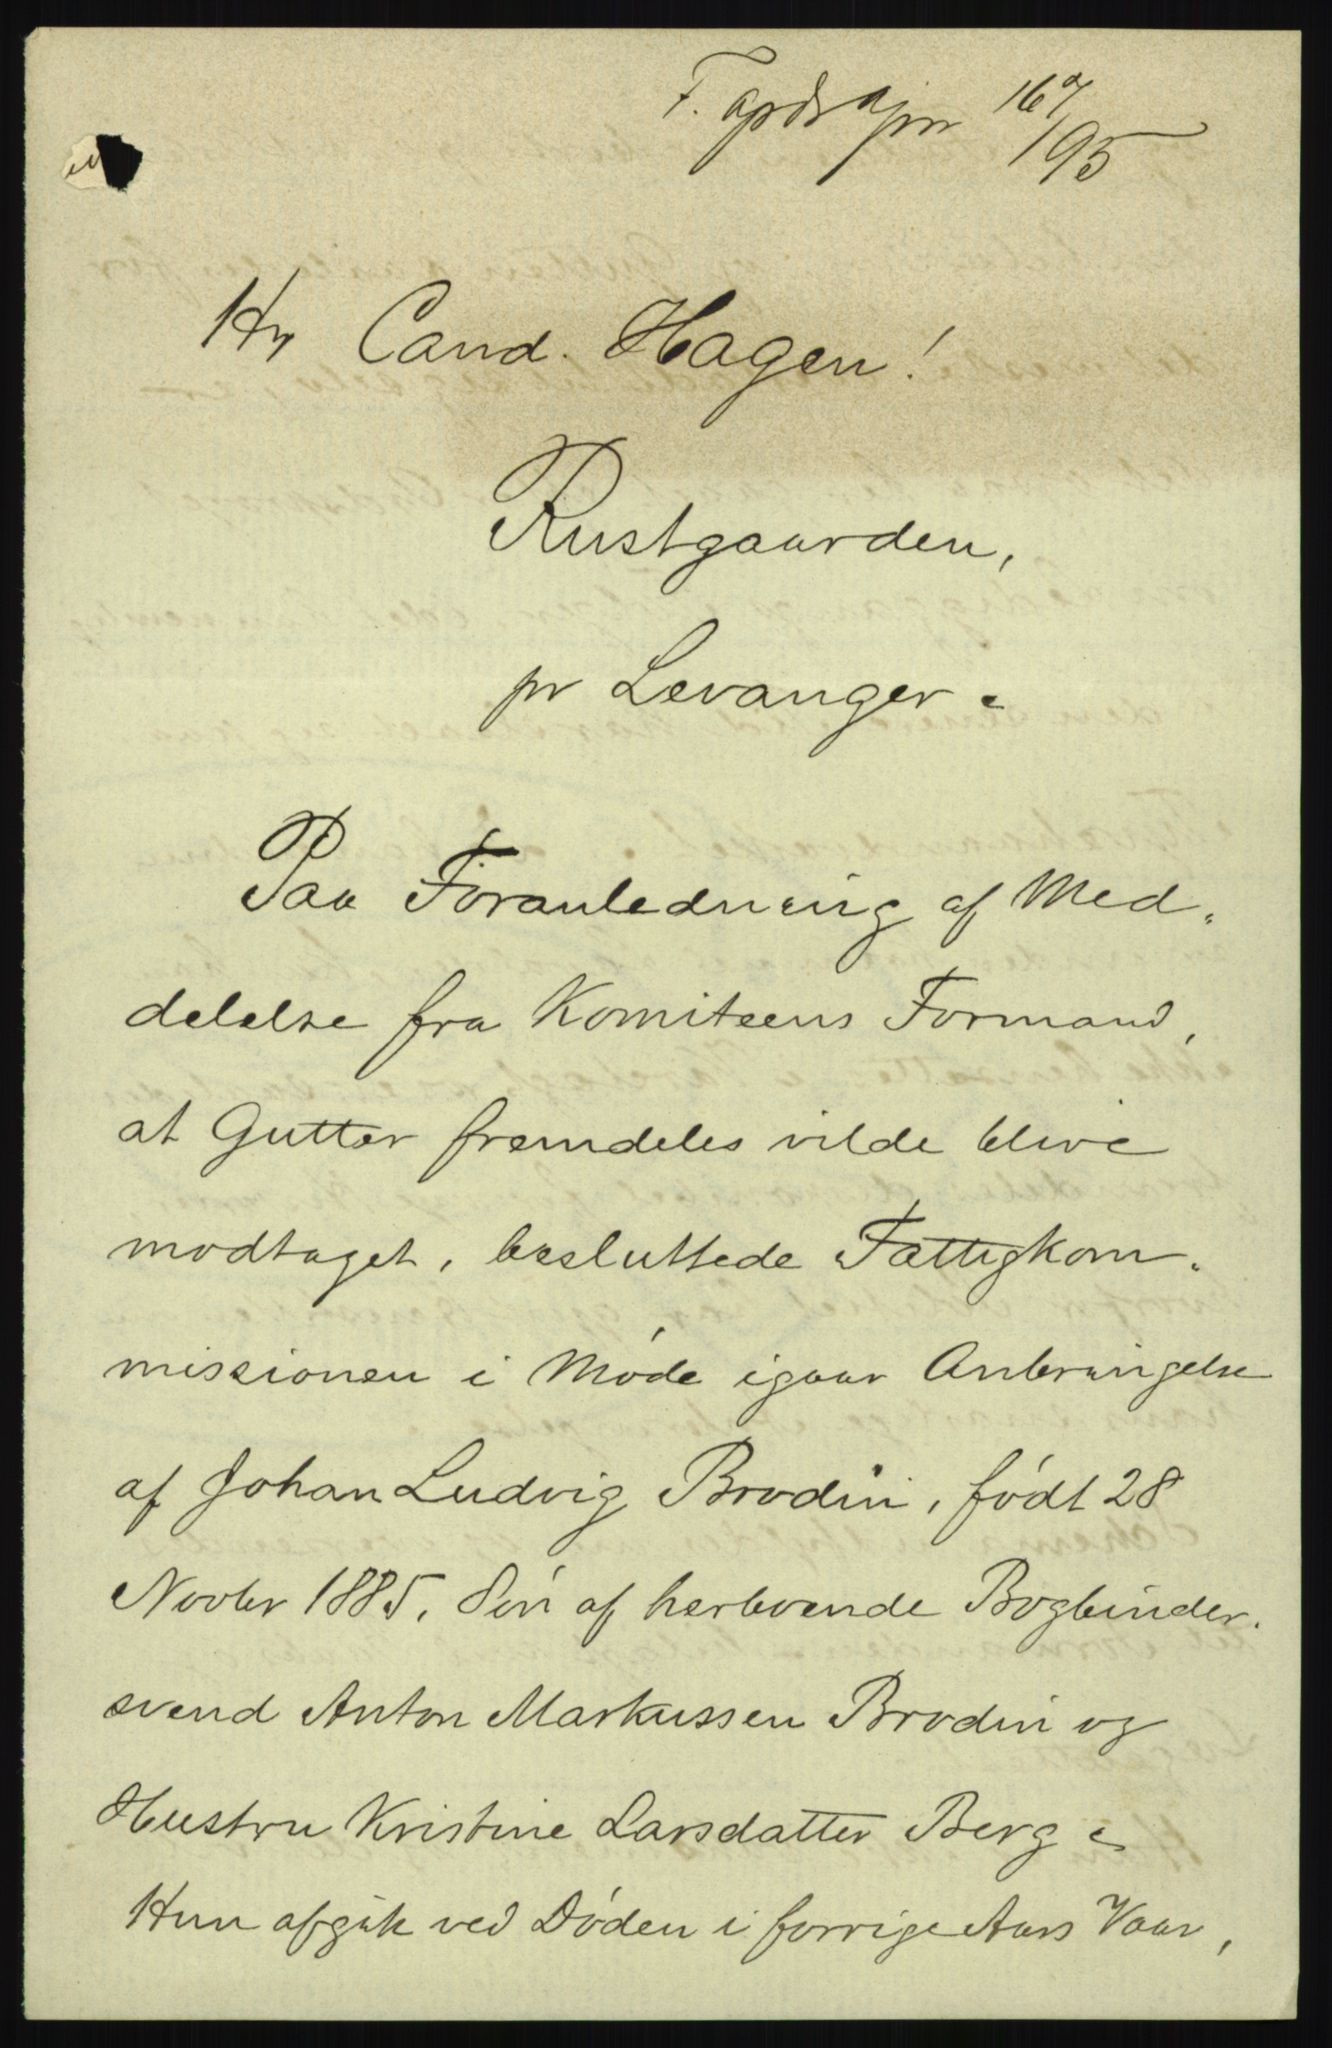 16 7/95
Hr Cand. Hagen!
Rustgaarden,
pr Levanger.
Paa Foranledning af Med-
delelse fra Komiteens Formand,
at Gutter fremdeles vilde blive
modtaget, besluttede Fattigkom-
missionen i Møde igaar Anbringelse
af Johan Ludvig Brodin, født 28
Novbr 1885, Søn af herboende Bogbinder-
svend Anton Markussen Brodin og
Hustru Kristine Larsdatter Berg.
Hun afgik ved Døden i forrige Aars Vaar,